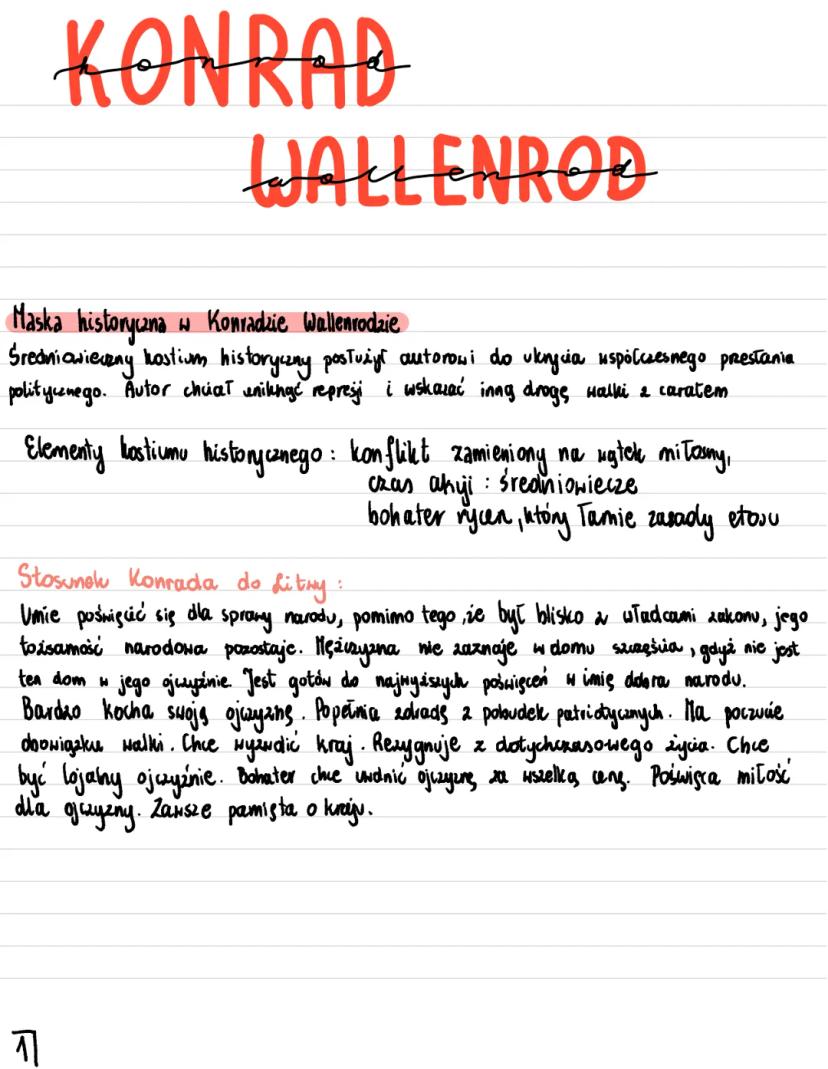 KONRAD
konrad
WALLENROD
wallenrod
Maska historyczna w Konradzie Wallenrodzie
Średniowieczny kostium historyczny posłużył autorowi do ukrycia współczesnego przesłania
politycznego. Autor chciał uniknąć represji i wskazać inną drogę walki z caratem
Elementy kostiumu historycznego: konflikt zamieniony na wątek miłosny,
czas akcji: średniowiecze
bohater rycerz, który łamie zasady etosu
Stosunek Konrada do Litwy:
Umie poświęcić się dla sprawy narodu, pomimo tego, że był blisko z władcami zakonu, jego
tożsamość narodowa pozostaje. Mężczyzna nie zaznaje w domu szczęścia, gdyż nie jest
ten dom w jego ojczyźnie. Jest gotów do najwyższych poświęceń w imię dobra narodu.
Bardzo kocha swoją ojczyznę. Popełnia zdradę z pobudek patriotycznych. Ma poczucie
obowiązku walki. Chce wyzwolić kraj. Rezygnuje z dotychczasowego życia. Chce
być lojalny ojczyźnie. Bohater chce uwolnić ojczyznę za wszelką cenę. Poświęca miłość
dla ojczyzny. Zawsze pamięta o kraju.
1